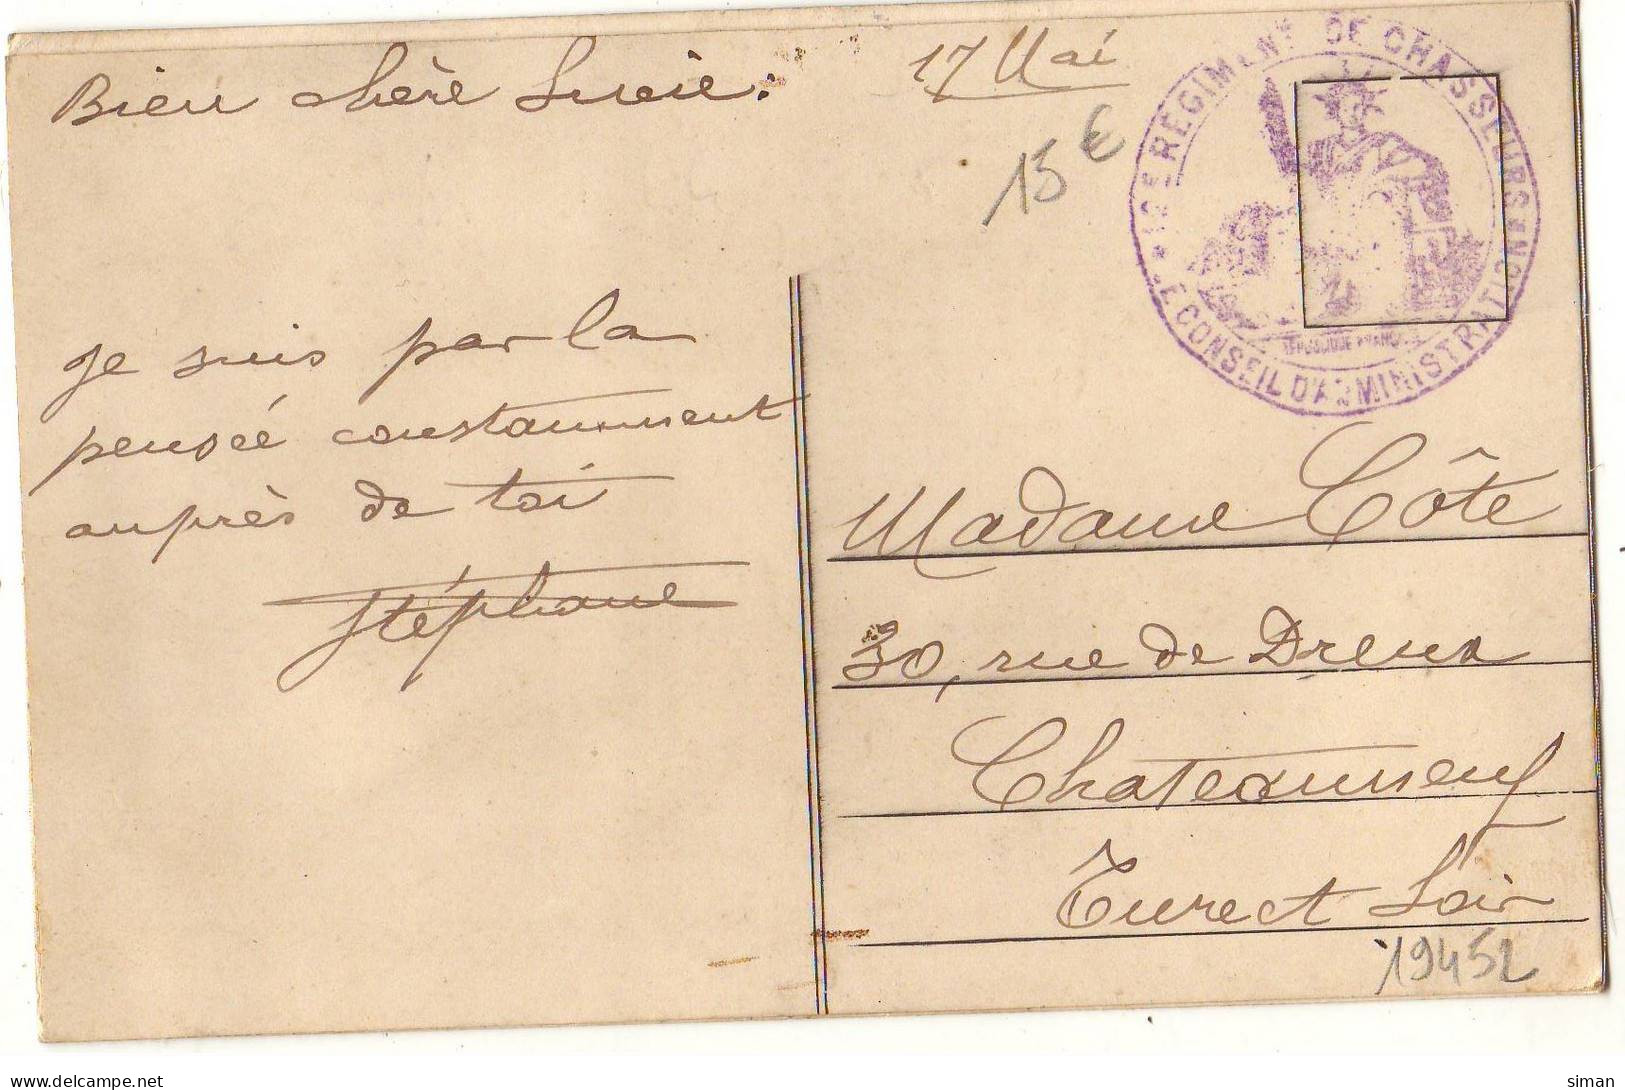 Bien chère Lucie :
17 Mai
15 €
REGIMENT DE CHASSEURS
* LE CONSEIL D'ADMINISTRATION *
REPUBLIQUE FRANÇAISE
Je suis par la
pensée constamment
auprès de toi
Stéphane
Madame Côte
30, rue de Dreux
Chateauneuf
Eure et Loir
19452
siman